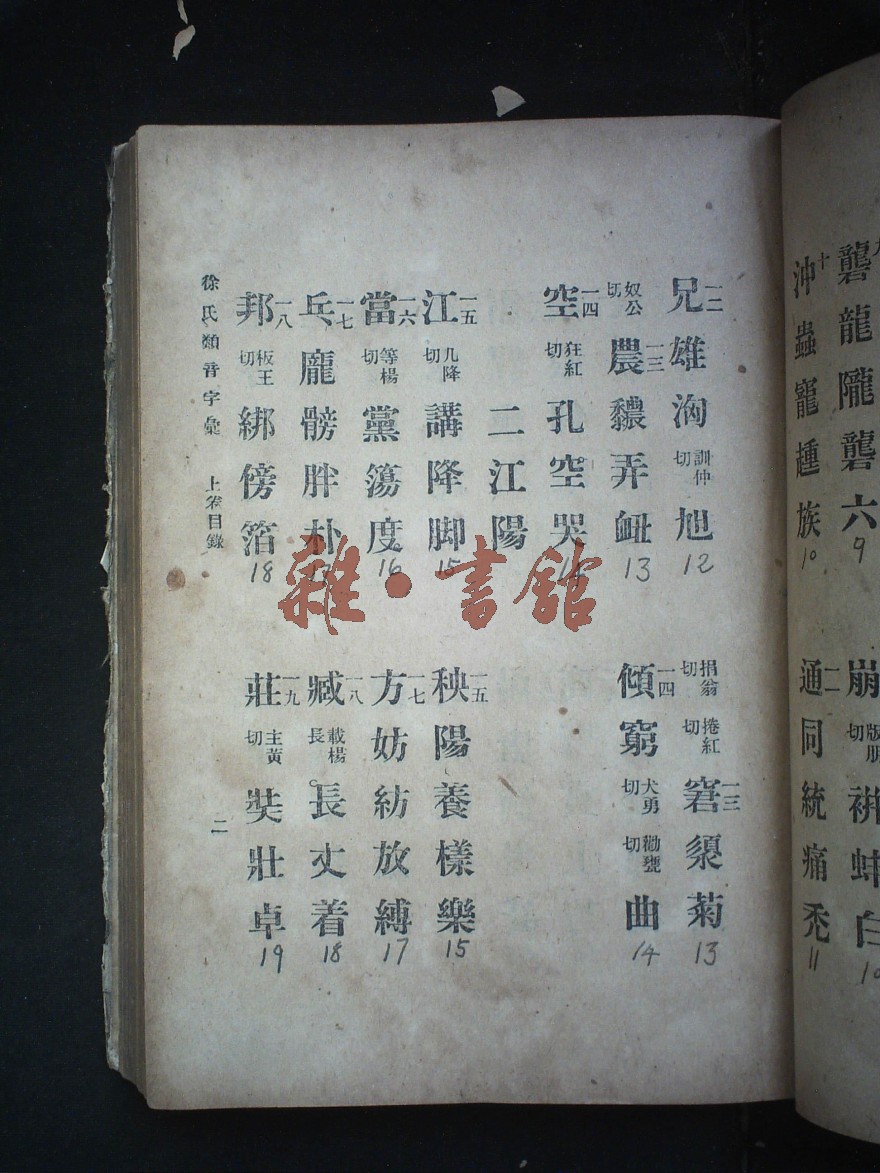 龔龍隴礱六
9
崩版朋切
蚌白
10
十沖蟲寵踵族
10
一一通同統痛禿
11
一二兄雄洶訓仲切旭
12
捐翁切捲紅切一三窘須菊
13
奴公切一三農齈弄衄
13
一四傾窮犬勇切勸甕切曲
14
一四空狂紅切孔空哭
14
二江陽
一五江几降切講降脚
15
一五秧陽養樣樂
15
一六當等楊切黨蕩度
16
一七方妨紡放縛
17
一七乓龐髈胖朴
17
一八臧載楊長長丈着
18
一八邦板王切綁傍箔
18
一九莊主黃切奘壯卓
19
徐氏類音字彙 上卷目錄 二
雜·書館